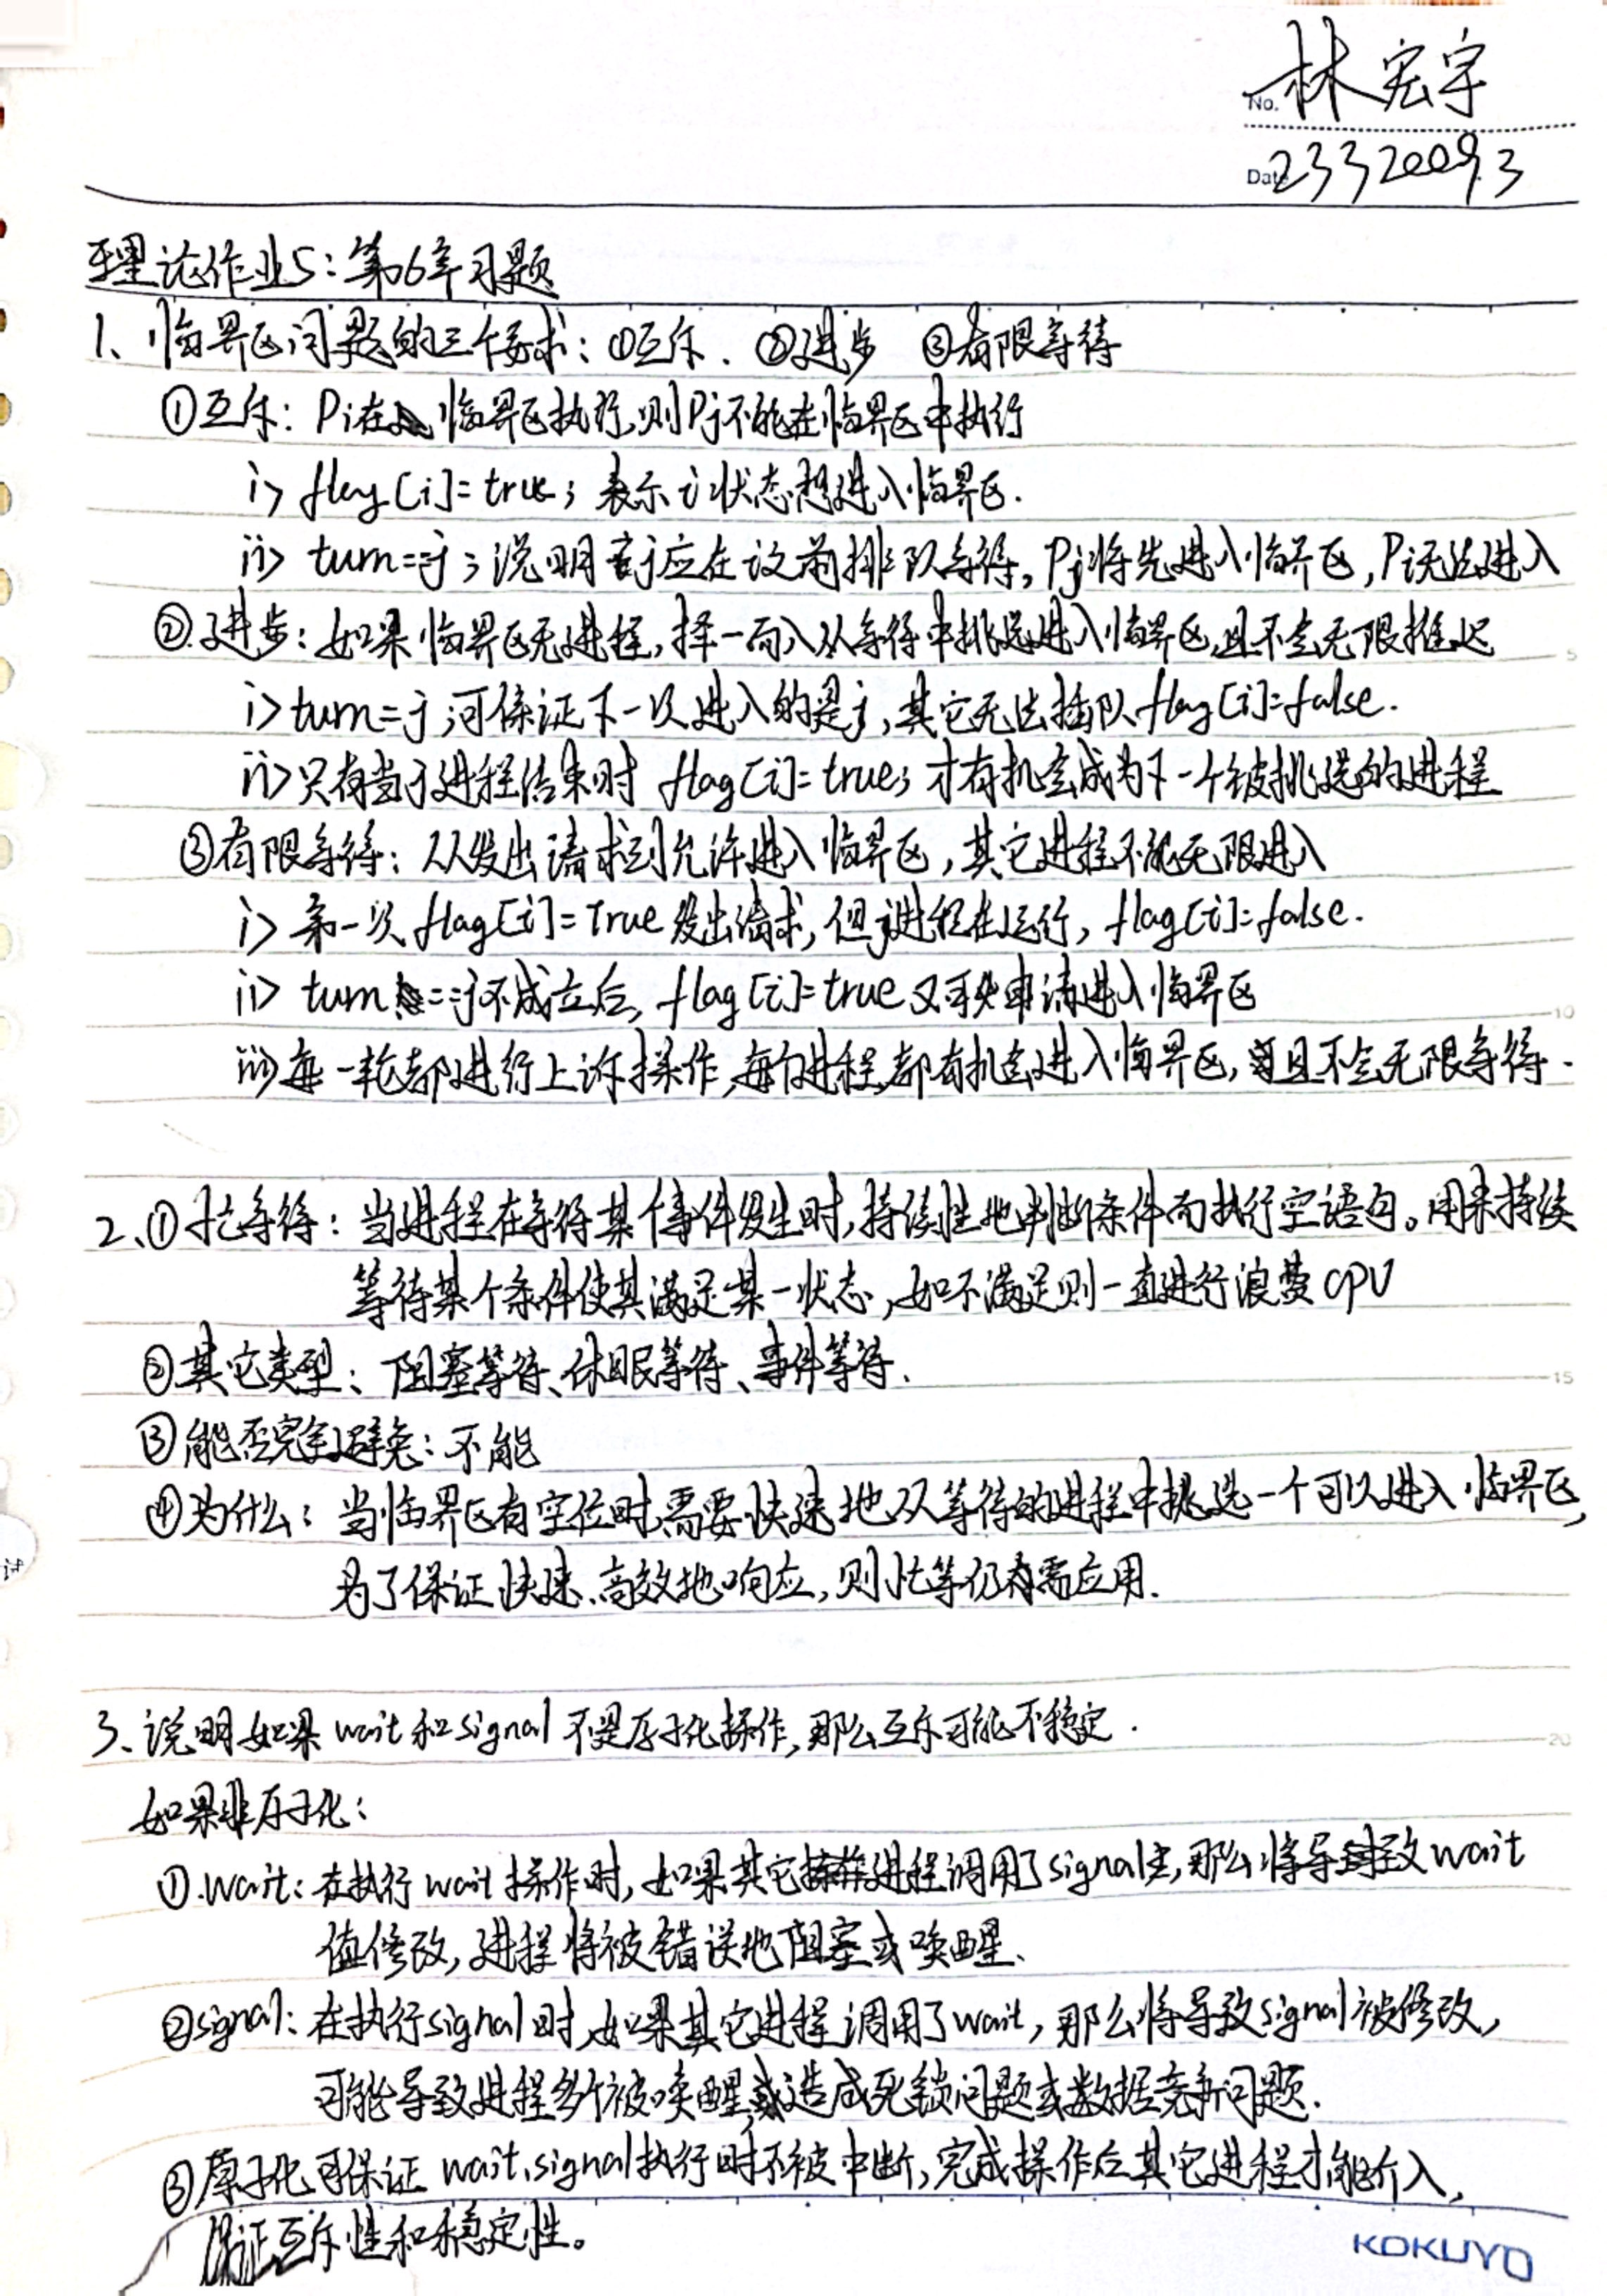 No. 林宏宇
Date 23320093
理论作业5：第6章习题
1、临界区问题的三个要求：①互斥．②进步 ③有限等待
①互斥：Pi在临界区执行，则Pj不能在临界区中执行
i> flag[i]=true；表示i状态想进入临界区．
ii> turn==j；说明 j应在议前排队等待，Pj将先进入临界区，Pi无法进入
②．进步：如果临界区无进程，择一而入从等待中挑选进入临界区，且不会无限推迟
i> turn=j；可保证下一次进入的是j，其它无法插队flag[i]=false．
ii>只有当j进程结束时 flag[i]=true；才有机会成为下一个被挑选的进程
③有限等待：从发出请求到允许进入临界区，其它进程不能无限进入
i> 第一次flag[i]=True发出请求，但j进程在运行，flag[i]=false．
ii> turn==j不成立后，flag[i]=true又可申请进入临界区
iii>每一轮都进行上诉操作，每个进程都有机会进入临界区，且不会无限等待．
2、①忙等待：当进程在等待某个事件发生时，持续性地判断条件而执行空语句。用来持续
等待某个条件使其满足某一状态，如不满足则一直进行浪费CPU
②其它类型：阻塞等待、休眠等待、事件等待．
③能否完全避免：不能
④为什么：当临界区有空位时，需要快速地从等待的进程中挑选一个可以进入临界区，
为了保证快速、高效地响应，则忙等仍有需应用．
3、说明如果wait和signal不是原子化操作，那么互斥可能不稳定．
如果非原子化：
①．wait：在执行wait操作时，如果其它进程调用了signal，那么将导致wait
值修改，进程将被错误地阻塞或唤醒、
②signal：在执行signal时，如果其它进程调用了wait，那么将导致signal被修改，
可能导致进程多个被唤醒，或造成死锁问题或数据竞争问题．
③原子化可保证wait、signal执行时不被中断，完成操作后其它进程才能介入，
保证互斥性和稳定性。
5
10
15
20
试
KOKUYO